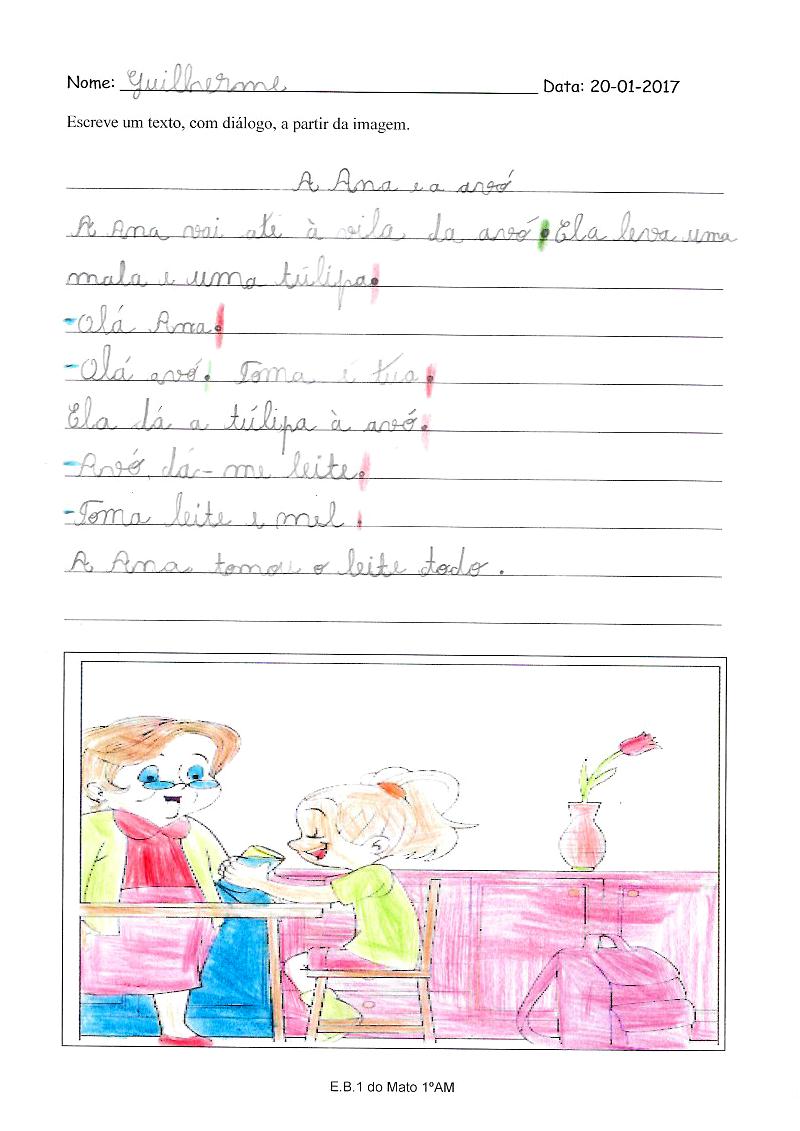 Nome: Guilherme Data: 20-01-2017
Escreve um texto, com diálogo, a partir da imagem.
A Ana e a avó
A Ana vai até à vila da avó. Ela leva uma
mala e uma túlipa.
-Olá Ana.
-Olá avó! Toma é tua.
Ela dá a túlipa à avó.
-Avó, dá-me leite.
-Toma leite e mel.
A Ana tomou o leite todo.
E.B.1 do Mato 1ºAM